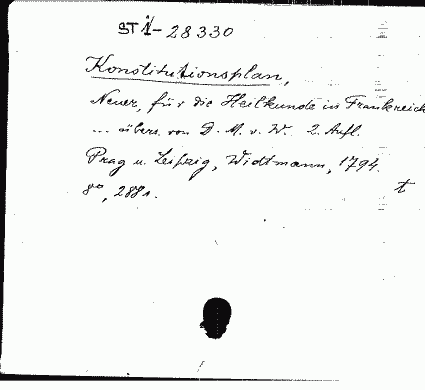 ST 1-28330
Konstitutionsplan,
Neuer, für die Heilkunde in Frankreich
... übers. von D. M. v. W. 2. Aufl.
Prag u. Leipzig, Widtmann, 1794.
8°, 288 s.
t